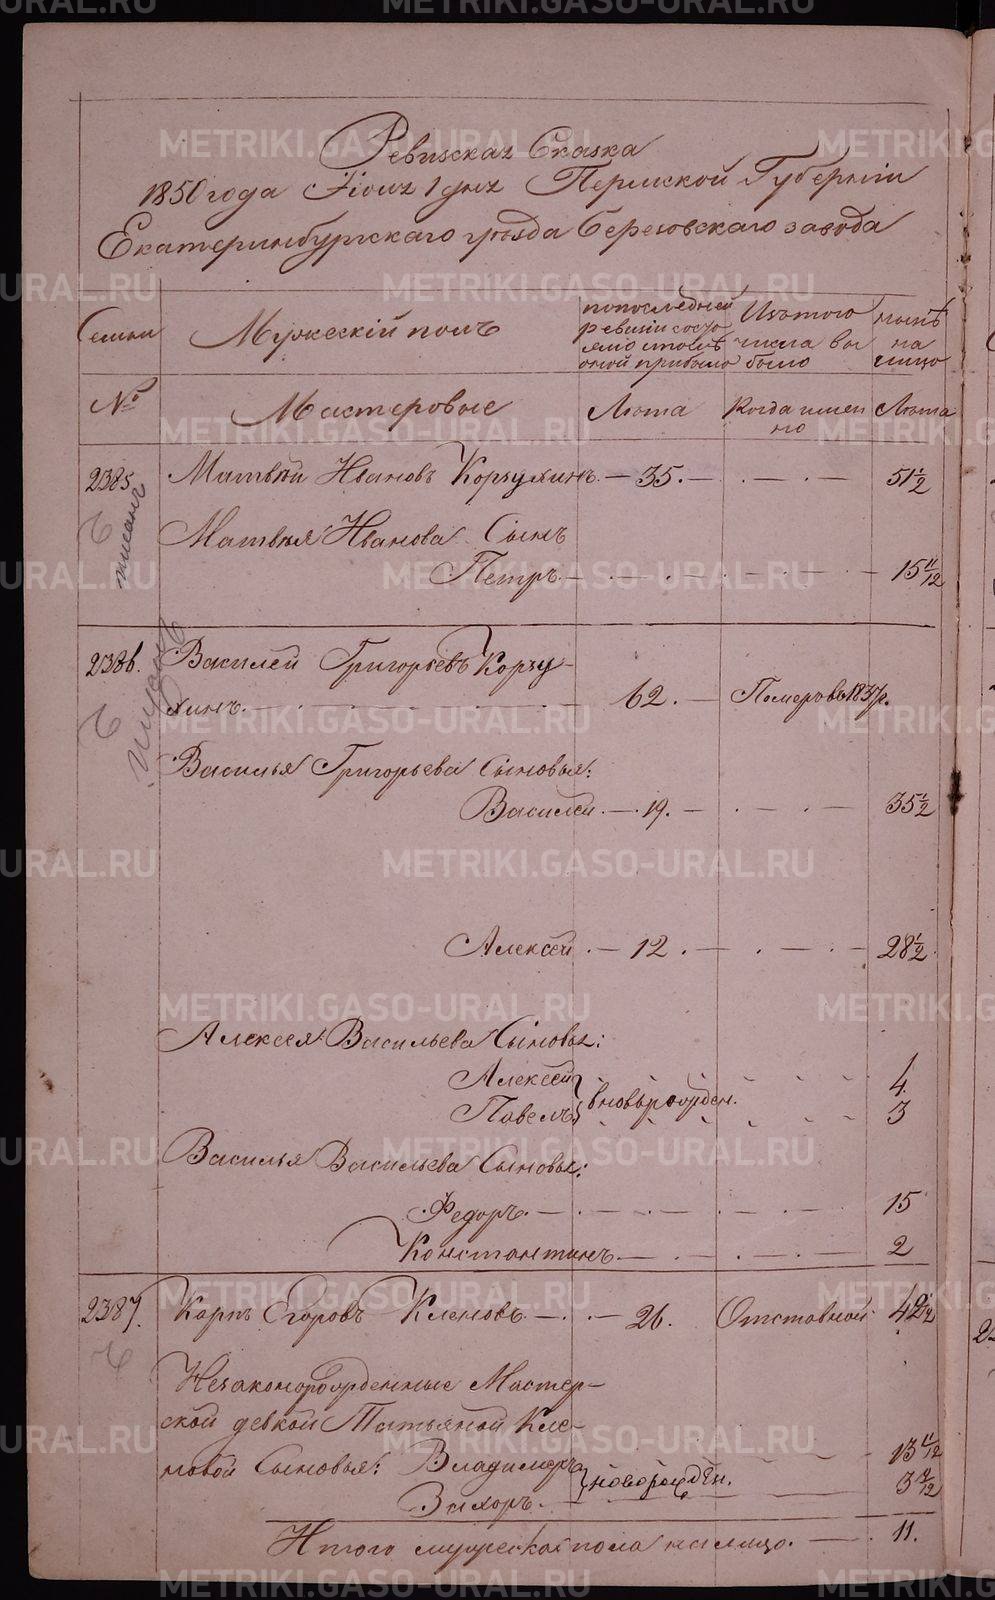 Ревизская Сказка
1850 года Июня 1 дня Пермской Губернии
Екатеринбургскаго уезда Березовскаго завода
Семьи
Мужескій полъ
по последней ревизіи состояло и после оной прибыло
Изъ того числа выбыло
ныне на лицо
№
Мастеровые
Лета
Когда имен но
Лета
2385. Матвей Ивановъ Корзухинъ. — 35. — 51 1/2
писанъ
Матвея Иванова Сынъ
Петръ — 15 11/12
2386. Василей Григорьевъ Корзу-
хинъ. — 62. — Померъ въ 1837 г.
писанъ
Василья Григорьева Сыновья:
Василей — 19. — 35 1/2
Алексей — 12. — 28 1/2
Алексея Васильева Сыновья:
Алексей 4
Павелъ вновь рожден. 3
Василья Васильева Сыновья:
Федоръ. — 15
Константинъ. — 2
2387. Карпъ Егоровъ Кленовъ. — 26. Отставной 42 1/2
Незаконорожденные Мастер-
ской девкой Татьяной Кле-
новой Сыновья: Владимеръ 13 11/12
новорожден. 3 7/12
Итого мужеска пола на лицо. — 11.
METRIKI.GASO-URAL.RU